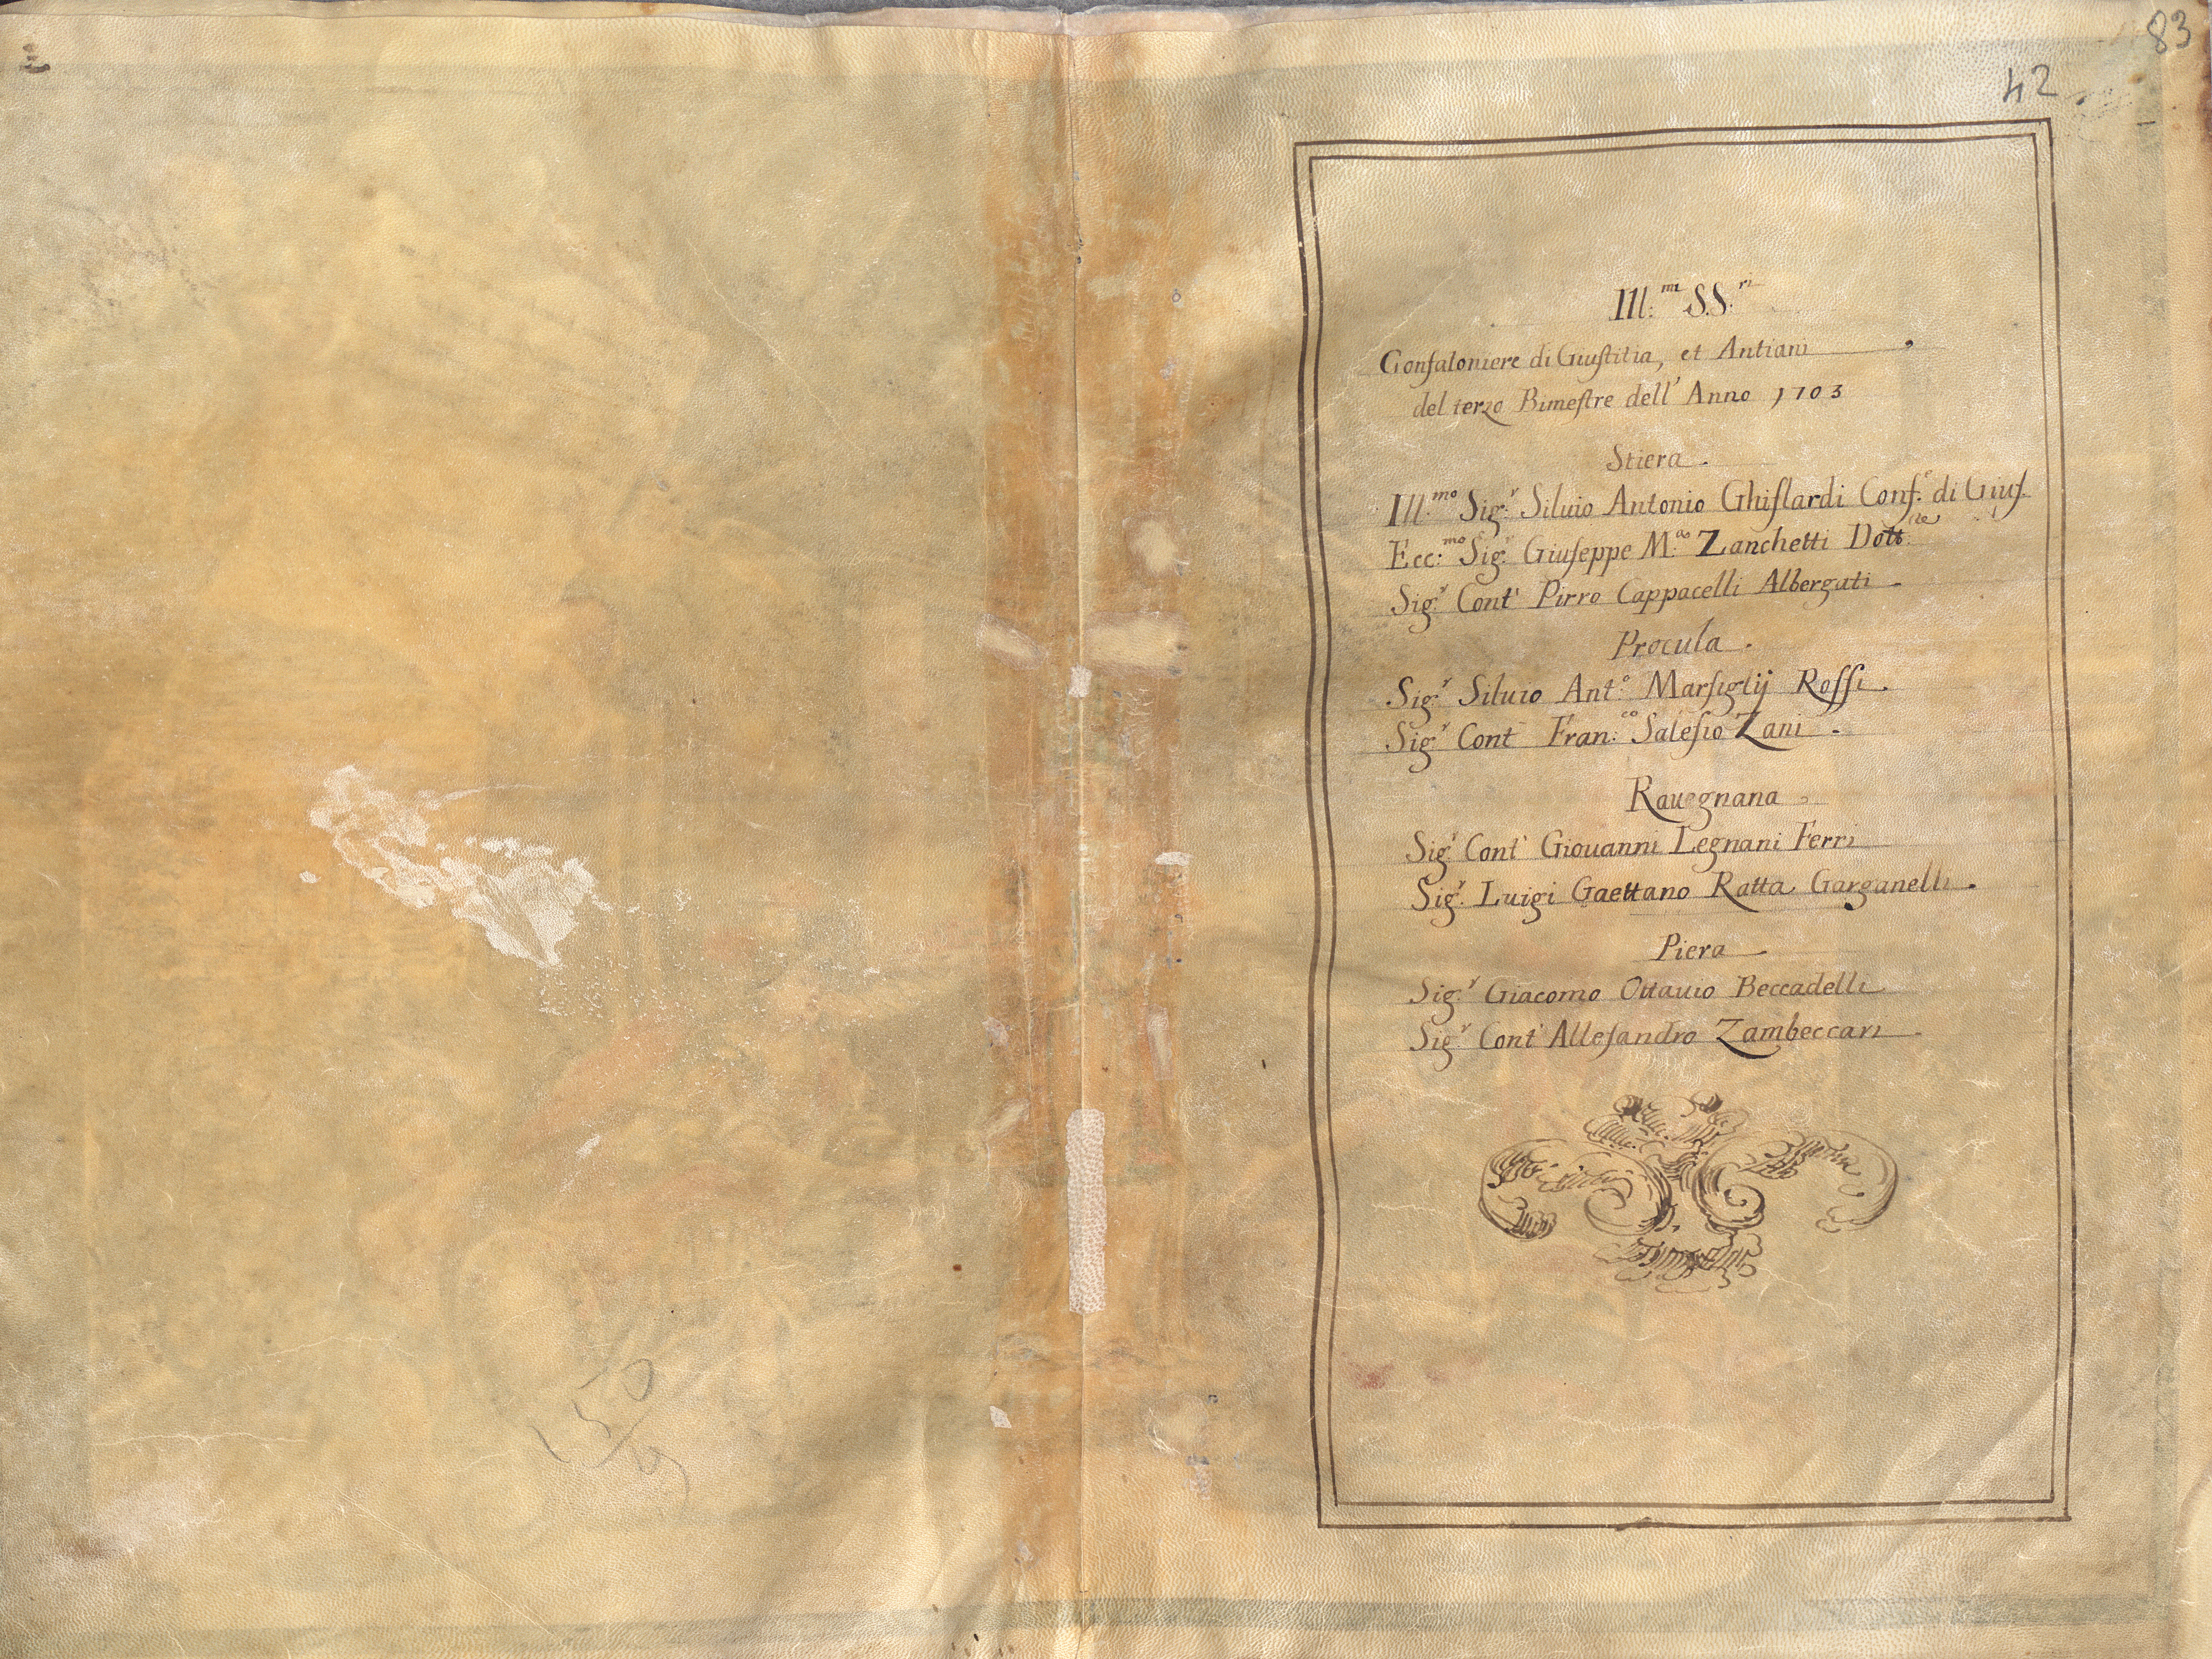 83
42
Ill:mi SS:ri
Confaloniere di Giustitia, et Antiani
del terzo Bimestre dell' Anno 1703
Stiera.
Ill:mo Sig:r Siluio Antonio Ghislardi Conf:e di Gius.
Ecc:mo Sig:r Giuseppe M:a Zanchetti Dott:re
Sig:r Cont' Pirro Cappacelli Albergati.
Procula.
Sig:r Siluio Ant:o Marsiglij Rossi.
Sig:r Cont Fran:co Salesio Zani.
Rauegnana.
Sig:r Cont' Giouanni Legnani Ferri
Sig:r Luigi Gaettano Ratta Garganelli.
Piera
Sig:r Giacomo Ottauio Beccadelli
Sig:r Cont' Allesandro Zambeccari
150